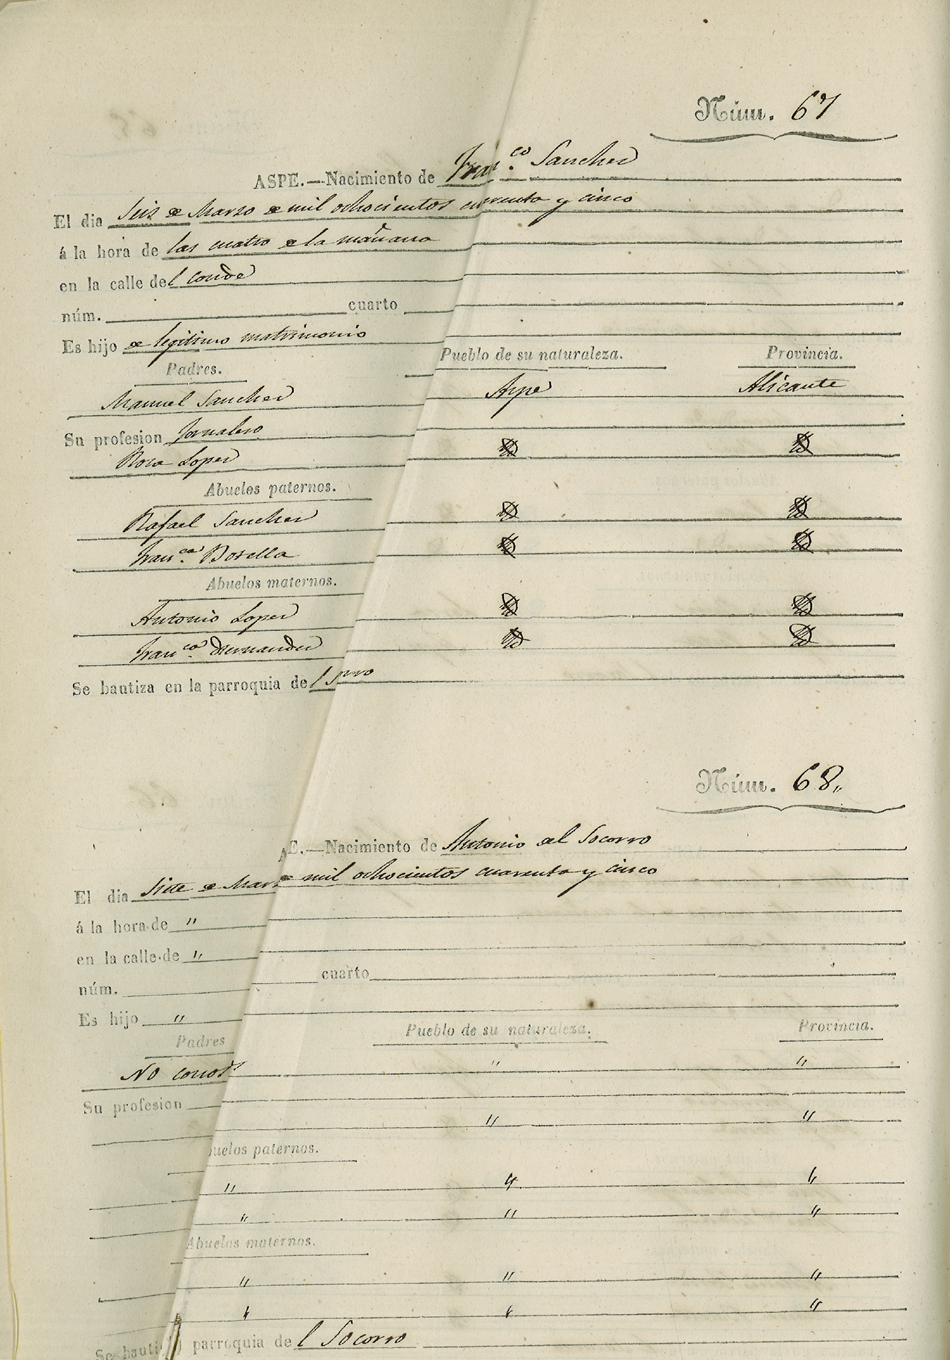 Núm. 67
ASPE.—Nacimiento de Franco Sanchez
El dia Seis de Marzo de mil ochocientos cuarenta y cinco
á la hora de las cuatro de la mañana
en la calle del conde
núm. cuarto
Es hijo de legitimo matrimonio
Padres. Pueblo de su naturaleza. Provincia.
Manuel Sanchez Aspe Alicante
Su profesion Jornalero
Rosa Lopez Id Id
Abuelos paternos.
Rafael Sanchez Id Id
Franca Botella Id Id
Abuelos maternos.
Antonio Lopez Id Id
Franca Hernandez Id Id
Se bautiza en la parroquia del
Núm. 68.
E.—Nacimiento de Antonio del Socorro
El dia Siete de Mar de mil ochocientos cuarenta y cinco
á la hora de "
en la calle de "
núm. cuarto
Es hijo "
Padres Pueblo de su naturaleza. Provincia.
No conos " "
Su profesion
" "
uelos paternos.
" " "
" " "
Abuelos maternos.
" " "
" " "
Se bauti parroquia del Socorro